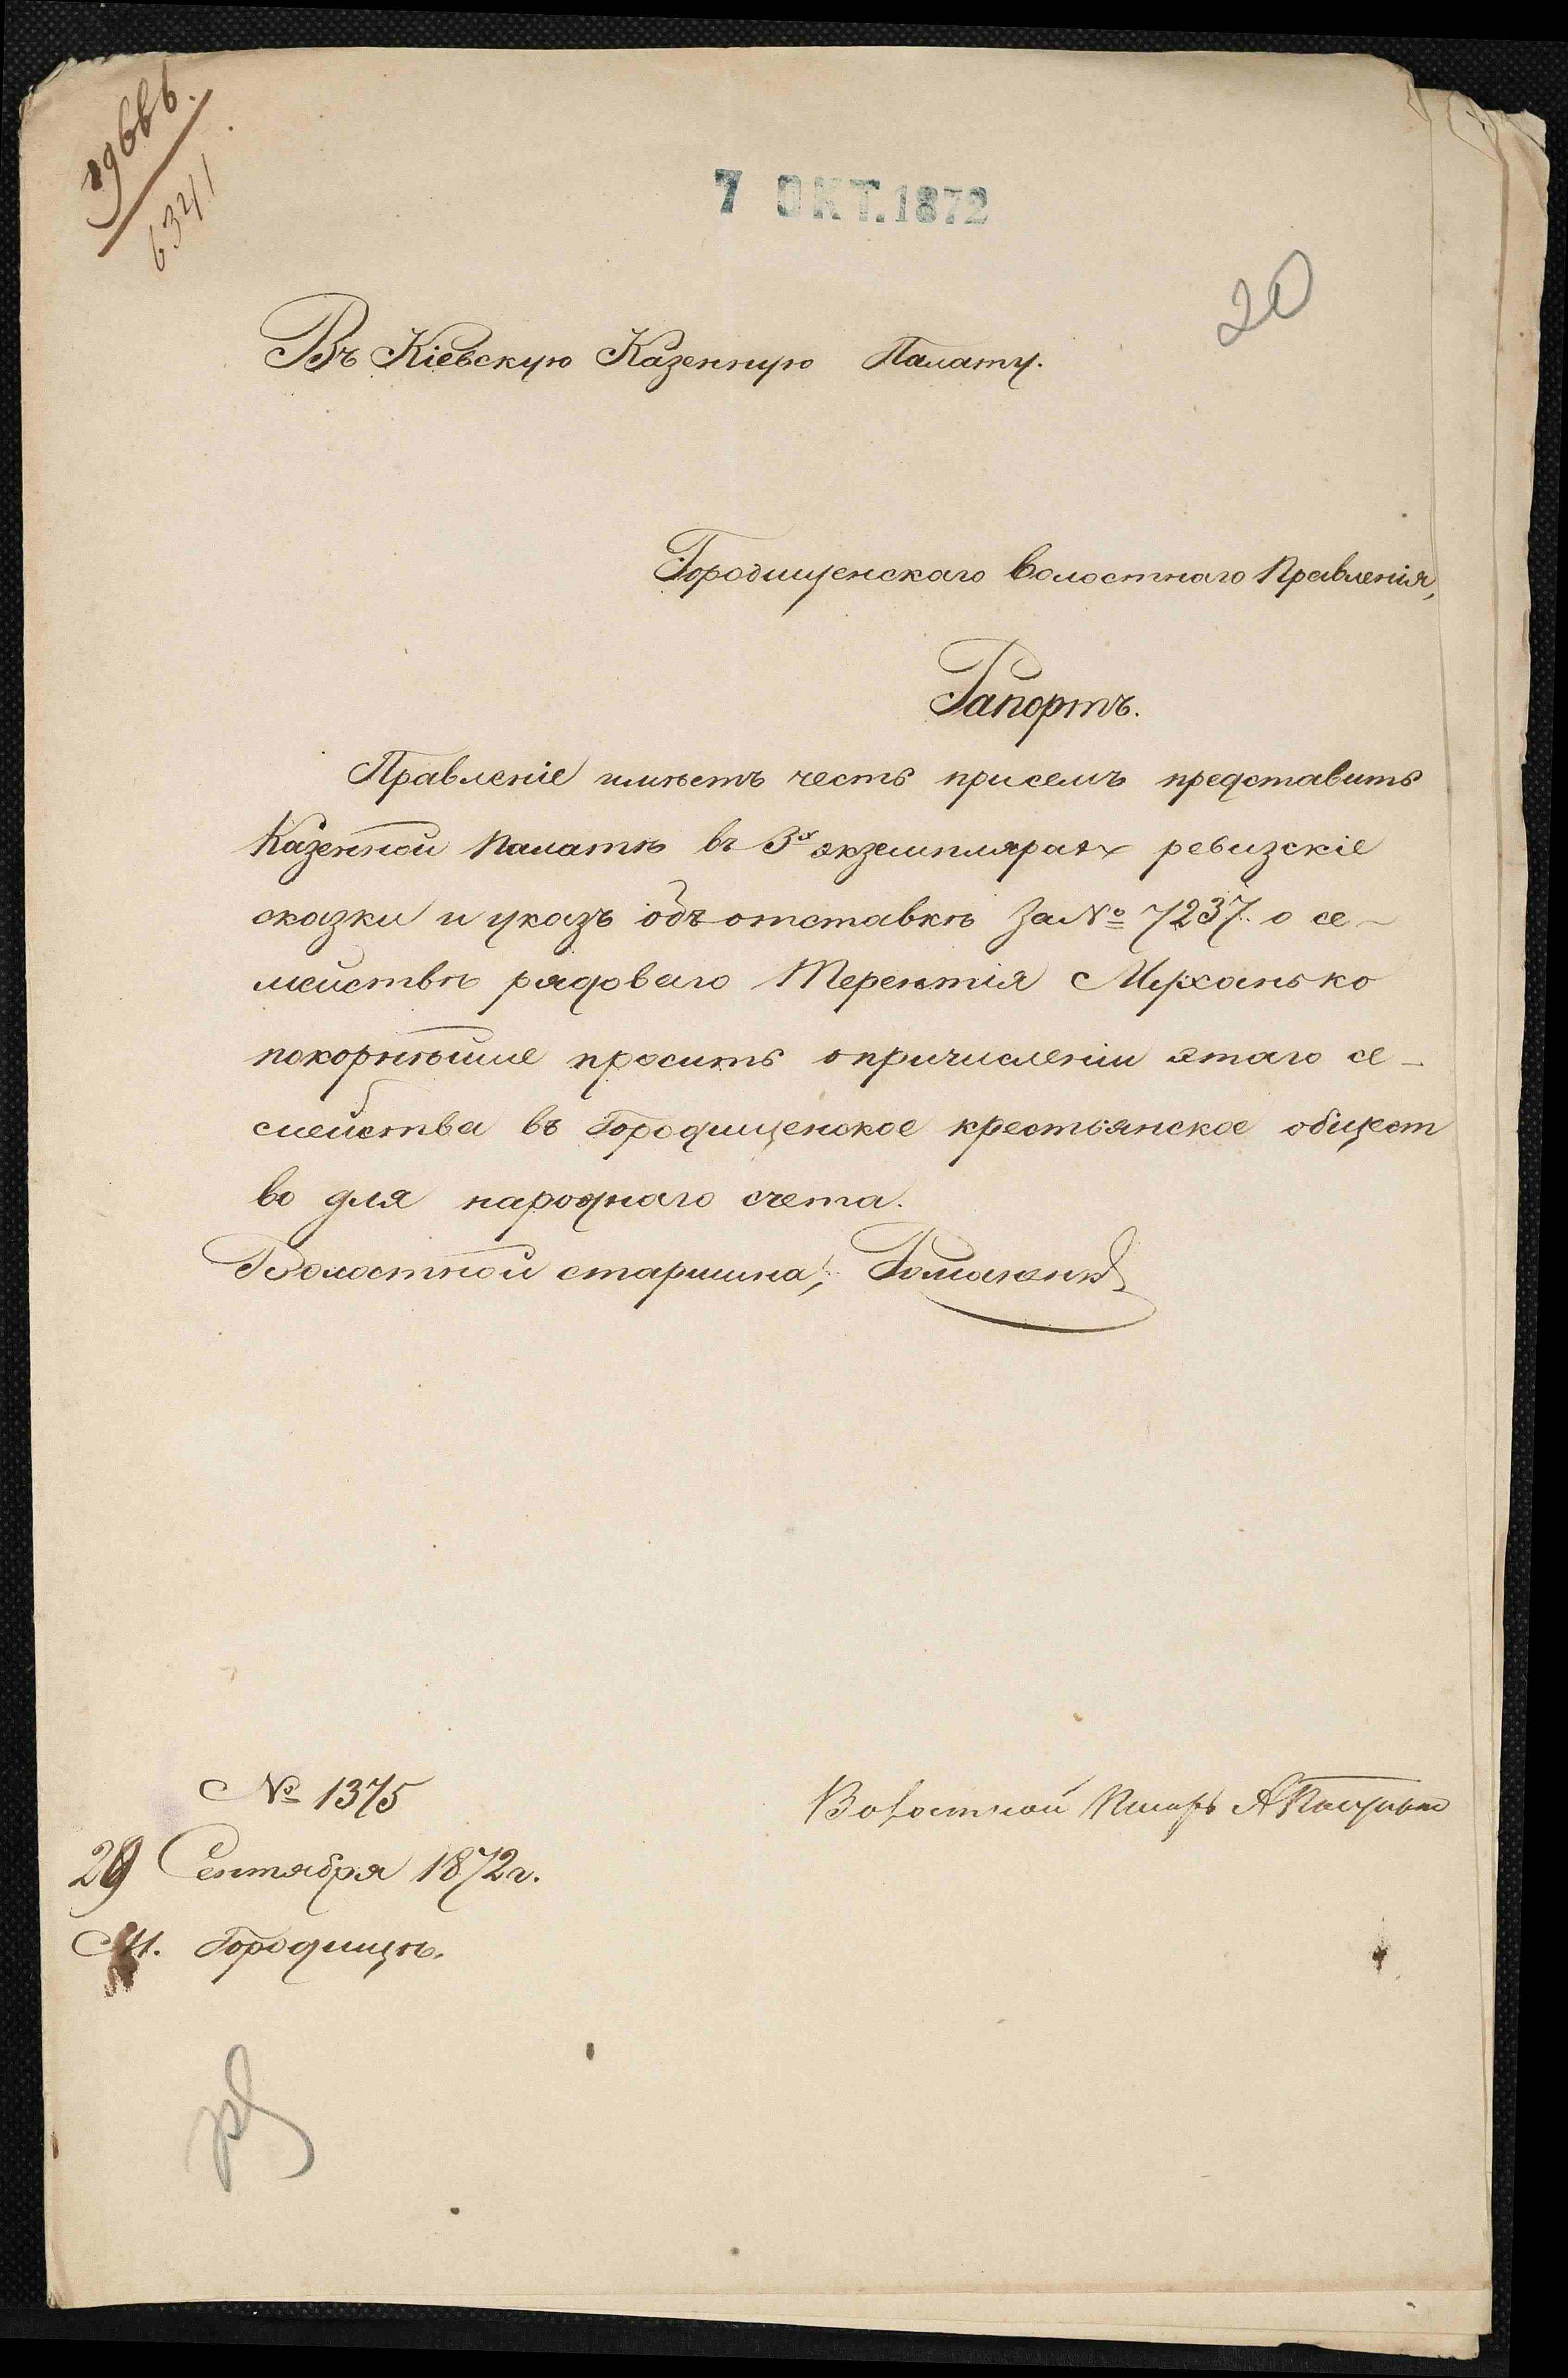 19666.
6341
7 ОКТ. 1872
20
Въ Кіевскую Казенную Палату.
Городищенскаго Волостнаго Правленія,
Рапортъ.
Правленіе имѣетъ честь присемъ представить
Казенной Палатѣ въ 3х экземплярах ревизскіе
сказки и указъ объ отставкѣ за № 7237. о се-
мействѣ рядоваго Терентія
покорнѣйше просить о причисленіи этаго се-
смейства въ Городищенское крестьянское общест
во для народнаго счета.
Волостной старшина, Романенко
№ 1375
Волостной Писарь
29 Сентября 1872 г.
М. Городище.